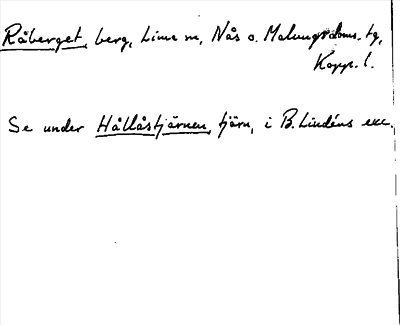 Råberget, berg, Lima sn, Nås o. Malungs doms. tg,
Kopp. l.
Se under Hållåstjärnen, tjärn, i B. Lindéns exc.